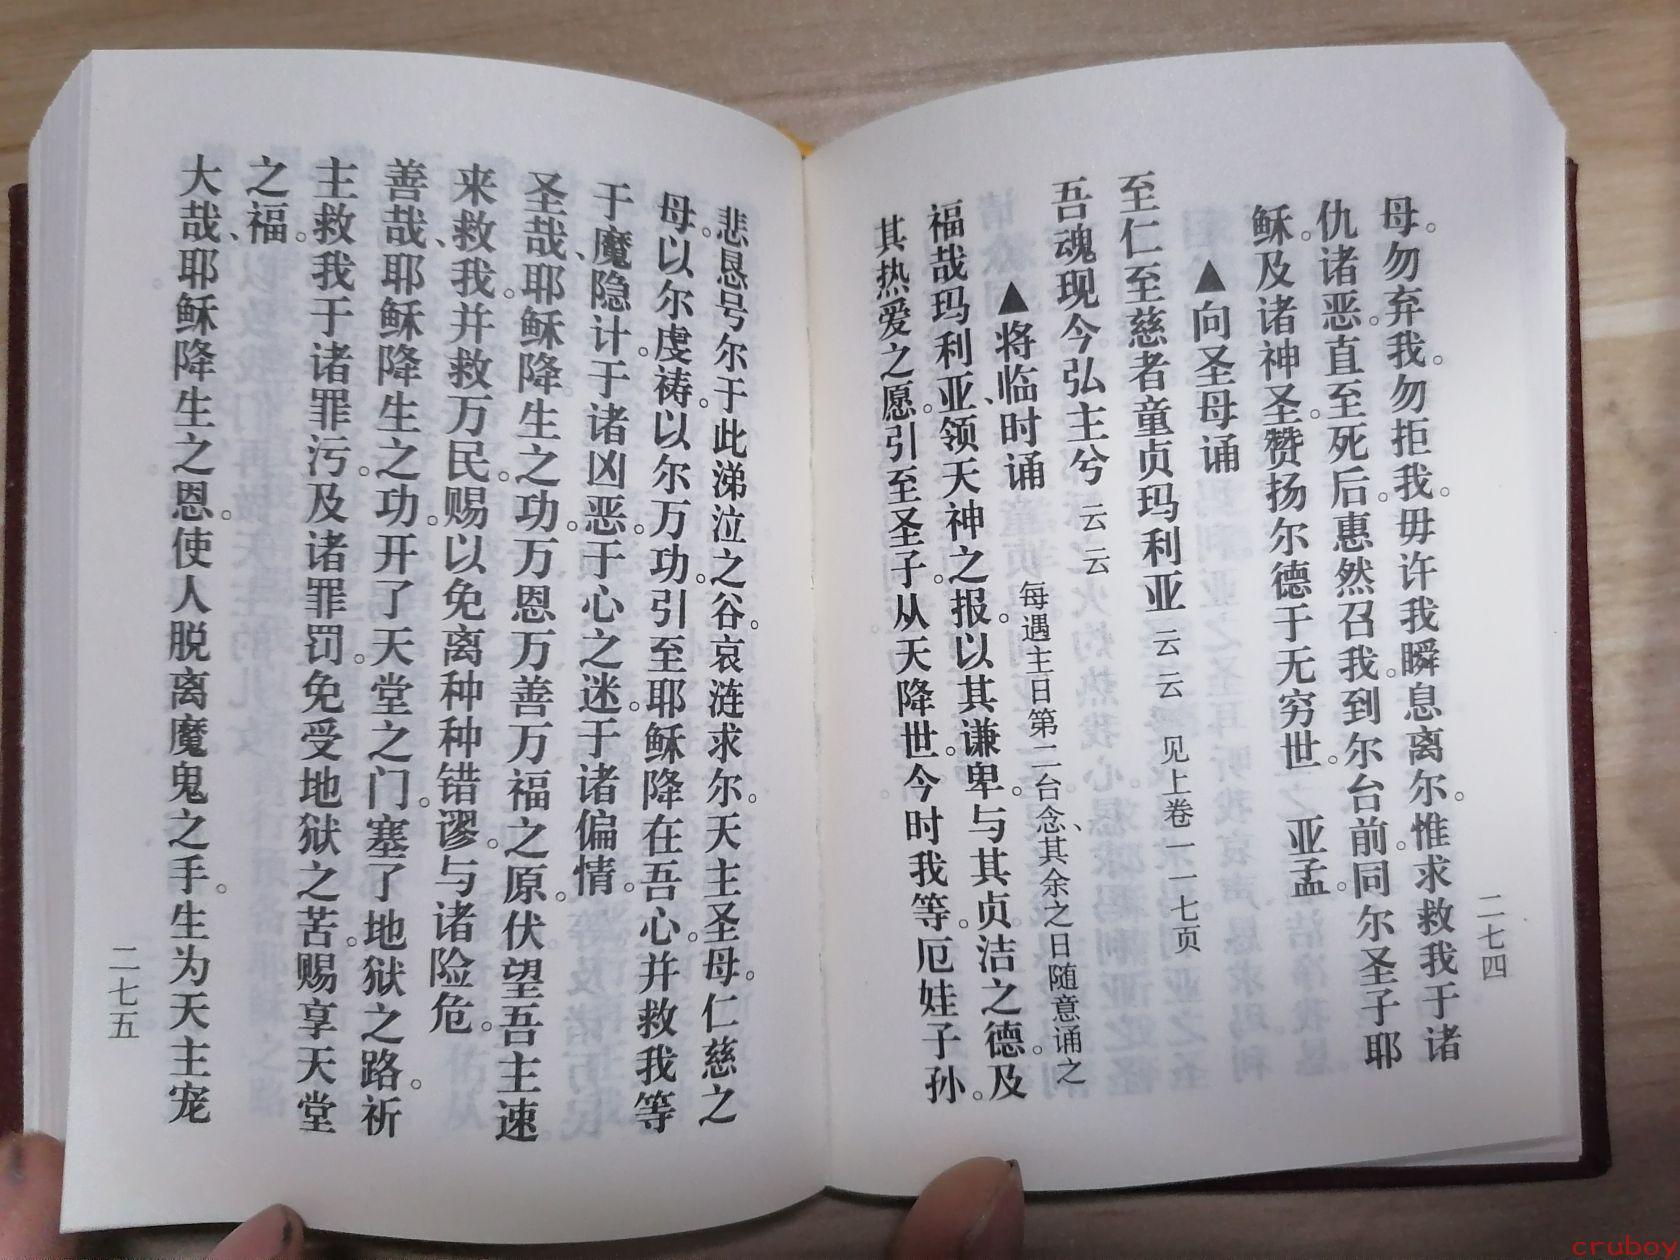 母。勿弃我。勿拒我。毋许我瞬息离尔。惟求救我于诸
仇诸恶。直至死后。惠然召我。到尔台前。同尔圣子耶
稣。及诸神圣。赞扬尔德于无穷世。亚孟。
▲向圣母诵
至仁至慈者童贞玛利亚 云云 见上卷一一七页
吾魂现今弘主兮 云云 每遇主日第二台念、其余之日随意诵之
▲将临时诵
福哉玛利亚、领天神之报。以其谦卑。与其贞洁之德。及
其热爱之愿。引至圣子。从天降世。今时我等。厄娃子孙。
二七四
悲恳号尔于此涕泣之谷。哀涟求尔。天主圣母。仁慈之
母。以尔虔祷。以尔万功。引至耶稣降在吾心。并救我等
于魔隐计。于诸凶恶。于心之迷。于诸偏情。
圣哉、耶稣降生之功。万恩万善万福之原。伏望吾主速
来救我。并救万民。赐以免离种种错谬。与诸险危。
善哉、耶稣降生之功。开了天堂之门。塞了地狱之路。祈
主救我于诸罪污。及诸罪罚。免受地狱之苦。赐享天堂
之福。
大哉、耶稣降生之恩。使人脱离魔鬼之手。生为天主宠
二七五
cruboy